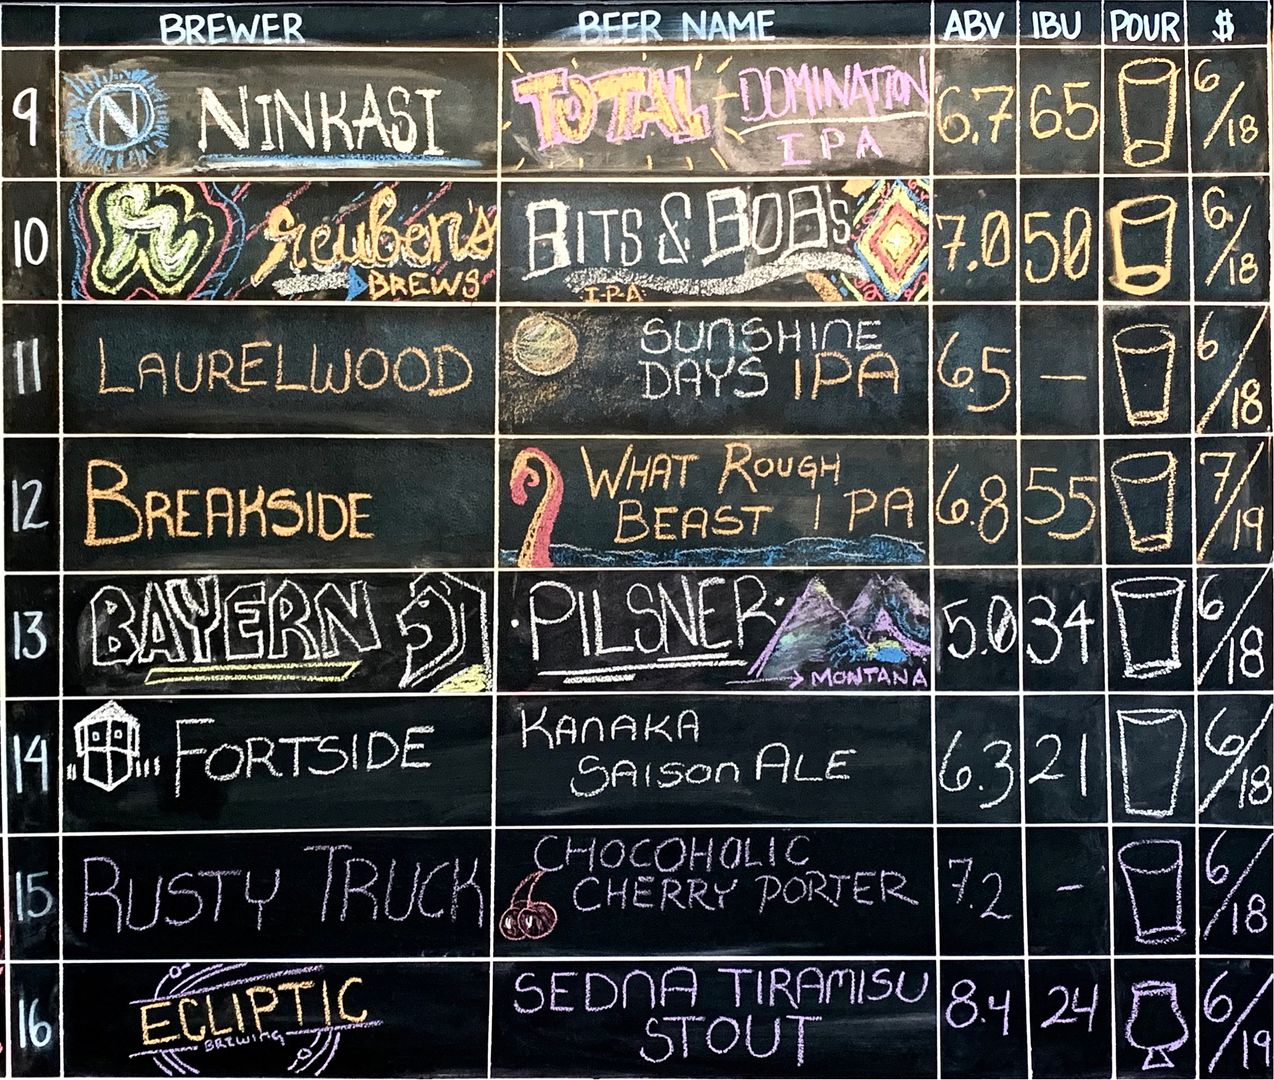 BREWER BEER NAME ABV IBU POUR $
9 N NINKASI TOTAL DOMINATION IPA 6.7 65 6/18
10 R Reuben's BREWS BITS & BOBS IPA 7.0 50 6/18
11 LAURELWOOD SUNSHINE DAYS IPA 6.5 — 6/18
12 BREAKSIDE WHAT ROUGH BEAST IPA 6.8 55 7/19
13 BAYERN ·PILSNER· MONTANA 5.0 34 6/18
14 FORTSIDE KANAKA SAISON ALE 6.3 21 6/18
15 RUSTY TRUCK CHOCOHOLIC CHERRY PORTER 7.2 - 6/18
16 ECLIPTIC BREWING SEDNA TIRAMISU STOUT 8.4 24 6/19